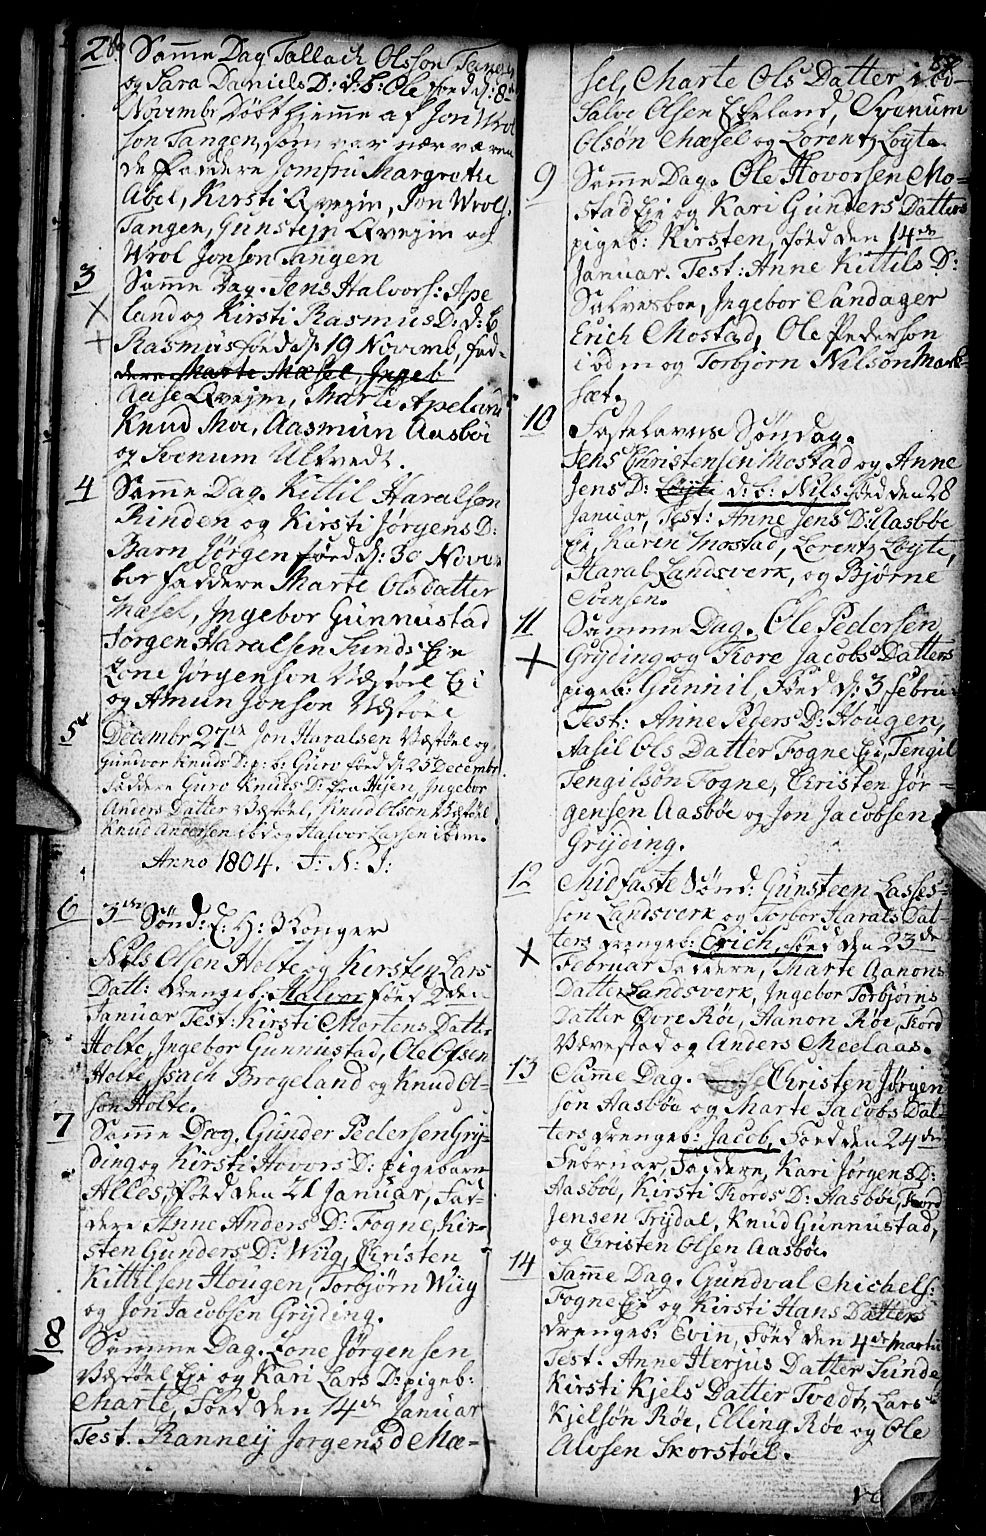 28
Samme Dag Tallach Olsson Tange
og Sara Daniels D: d: b: Ole føed d: 8de
Novembr Døbt hjemme af Jon Wrol
son Tangen, som var nærværen
de Faddere Jomfru Margrethe
Abel, Kirsti Qvejin, Jon Wrols:
Tangen, Gunstejn Qvejin og
Wrol Jonson Tangen
3 Samme Dag. Jens Halvors: Ape
land og Kirsti Rasmus D: d: b
Rasmus føed d: 19 Novemb, fad-
dere Marte Mæsel, Ingeb
Aase Qvejm, Marte Apeland
Knud Moe, Aasmun Aasbøe
og Svenum Ultvedt.
4 Samme Dag. Kittil Haralson
Rinden og Kirsti Jørgens D:
Barn Jørgen føed d: 30 Novem
ber Faddere Marte Olsdatter
Mæsel, Ingebor Gunnustad
Jørgen Haralsen Sunds Eje
Tone Jørgenson Væstøel Eji
og Amun Jonson Væstøel
5t Decembr 27de Jon Haralsen Væstøel og
Gundvor Knuds D: p: b: Guro føed d: 25 Decembr
Faddere Guro Knuds D: Bra Hejen, Ingebor
Anders Datter Væstøel, Knud Olson Væstøel
Knud Andersen ibd og Halvor Larsen ibdm.
Anno 1804. I: N: I:
6 3de Sønd: E: H: 3 Konger
Nils Olsen Holte og Kirsten Lars
Datt: drengeb: Halvor føed 2den
Januar Test: Kirsti Mortens Datte
Holte, Ingebor Gunnustad, Ole Olsen
Holte, Isach Brogeland og Knud Ol-
son Holte.
7 Samme Dag, Gunder Pedersen Gry-
ding og Kirsti Hovors D: pigebarn
Alles, føed den 21 Januar, Fad-
dere Anne Anders D: Fogne, Kir-
sten Gunders D: Wiig, Christen
Kittilsen Hougen, Torbjørn Wiig
og Jon Jacobsen Gryding.
8 Samme Dag. Tone Jørgensen
Væstøel Eje og Kari Lars D: pigeb:
Marte, Føed den 14de Januar
Test. Ranney Jørgens d Mæ-
sel, Marte Ols Datter ibd-
Salve Olsen Egeland, Svenum
Olsøn Mæsel og Lorentz Løyte.
9 Samme Dag. Ole Hovorsen Mo-
stad Eje og Kari Gunders Datters
pigeb: Kirsten, føed den 14de
Januar. Test: Anne Kittils D:
Salvesboe, Ingebor Sandager
Erich Mostad, Ole Pederson
ibdm og Torbjørn Nilson Mark-
sæt.
10 Fastelavns Søndag.
Jens Christensen Mostad og Anne
Jens D: d: b: Nils føed den 28
Januar, Test: Anne Jens D: Aasbøe
Eje, Karen Mostad, Lorentz Løyte,
Haral Landsverk, og Bjørne
Evensen.
11 Samme Dag. Ole Pedersen
Gryding og Tore Jacobs Datters
pigeb: Gunnil, Føed d: 3 Februa
Test: Anne Peders D: Hougen,
Aasil Ols Datter Fogne Eje, Tengil
Tengilsøn Fogne, Christen Jør-
gensen Aasbøe og Jon Jacobsen
Gryding.
12 Midfaste Sønd: Gunsteen Lasses-
søn Landsverk og Torbor Harals Dat-
ters drengeb: Erich, føed den 23de
Februar Faddere, Marte Aanons
Datter Landsverk, Ingebor Torbjørns
Datter Øvre Røe, Aanon Røe, Tord
Vævestad og Anders Meelaas.
13 Samme Dag. Christen Jørgen
søn Aasbøe og Marte Jacobs Dat-
ters drengeb: Jacob, Føed den 24de
Februar, Faddere, Kari Jørgens D:
Aasbøe, Kirsti Tords D: Aasbøe, Tord
Jensen Trydal, Knud Gunnustad,
og Christen Olsen Aasbøe.
14 Samme Dag. Gundval Michels:
Fogne Eje og Kirsti Hans Datters
drengeb: Evin, Føed den 4de Martii
Test. Anne Herjus Datter Sunde
Kirsti Kjels Datter Tvedt, Lars
Kjelsøn Røe, Elling Røe og Ole
Alvsen Skorstøel.